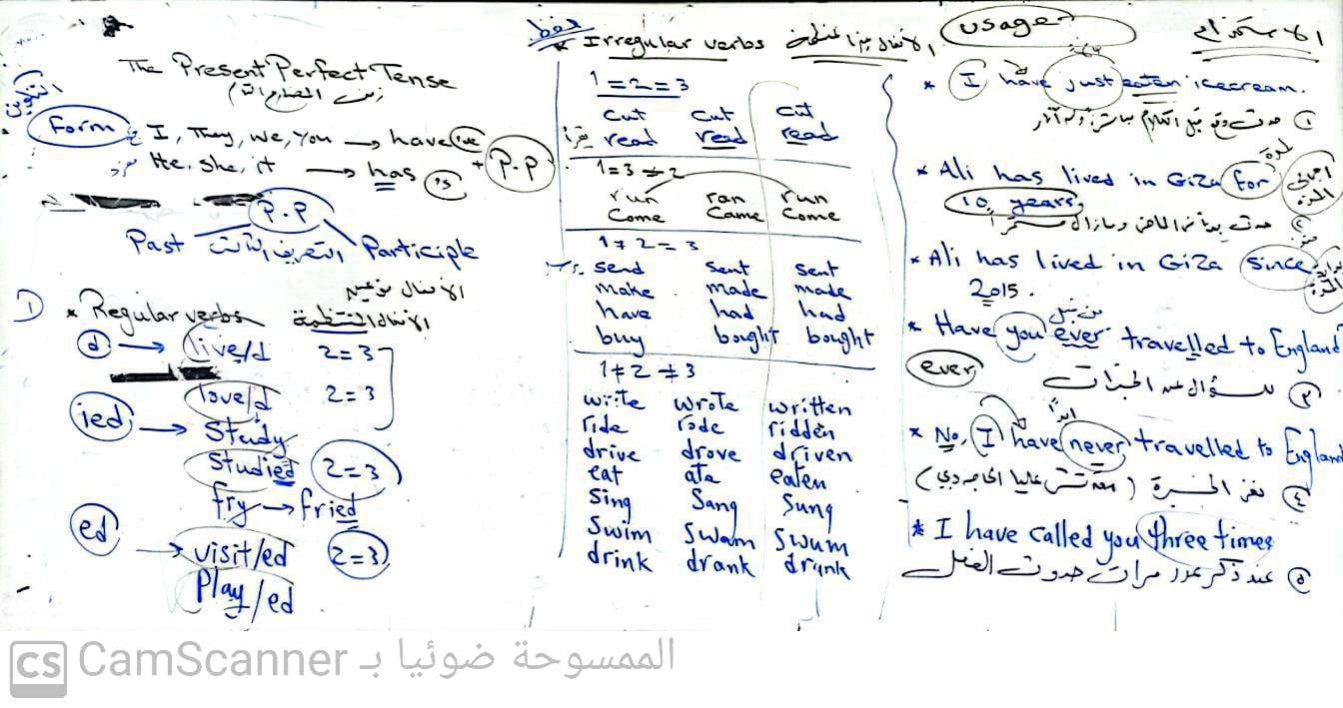 The Present Perfect Tense
زمن المضارع التام
التكوين
Form
I, They, we, you → have 've
He, she, it → has 's
+ P.P
P.P
Past التصريف الثالث Participle
الأفعال نوعين
1
* Regular verbs الأفعال المنتظمة
d → live/d 2=3
love/d 2=3
ied → Study
Studied 2=3
fry → fried
ed → visit/ed 2=3
Play/ed
حفظ
* Irregular verbs الأفعال غير المنتظمة
1=2=3
cut cut cut
يقرأ read read read
1=3≠2
run ran run
Come Came Come
1≠2=3
send sent sent
make made made
have had had
buy bought bought
1≠2≠3
write wrote written
ride rode ridden
drive drove driven
eat ate eaten
Sing Sang Sung
Swim Swam Swum
drink drank drunk
usage الاستخدام
* I have just eaten icecream.
① حدث وقع قبل الكلام مباشرة وله آثار
* Ali has lived in Giza for لمدة
10 years. اجمالي المدة
② حدث بدأ في الماضي ومازال مستمراً
* Ali has lived in Giza since منذ
2015. بداية المدة
من قبل
* Have you ever travelled to England
ever
③ للسؤال عن الخبرات
ابداً
* No, I have never travelled to England
④ نفي الخبرة
* I have called you three times
⑤ عند ذكر عدد مرات حدوث الفعل
CS CamScanner الممسوحة ضوئيا بـ